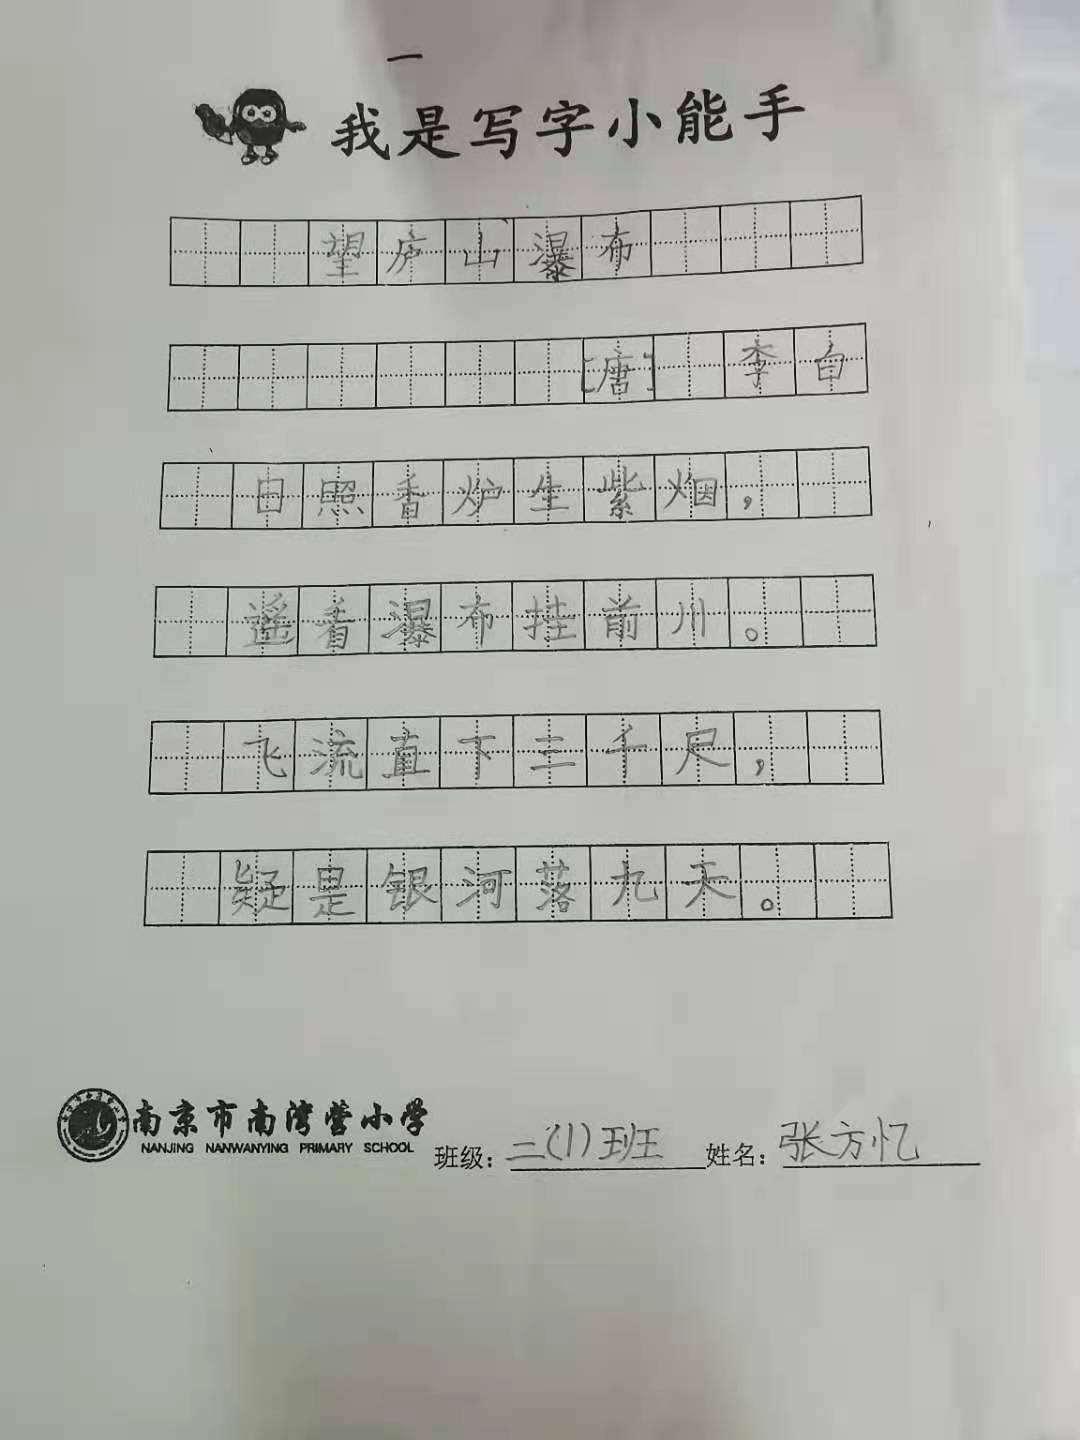 一
我是写字小能手
望庐山瀑布
[唐] 李白
日照香炉生紫烟，
遥看瀑布挂前川。
飞流直下三千尺，
疑是银河落九天。
南京市南湾营小学
NANJING NANWANYING PRIMARY SCHOOL
班级：二(1)班 姓名：张方忆